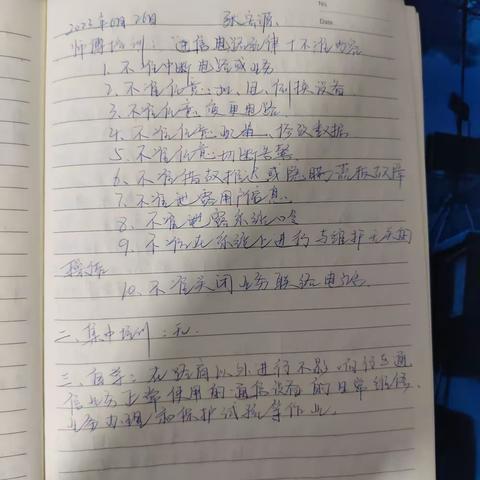 No
Date
2023年07月26日 张宏源
师傅培训: 通信电路纪律十不准内容
1、不准中断电路或业务
2、不准任意加、甩、倒换设备
3、不准任意变更电路
4、不准任意配置、修改数据
5、不准任意切断告警
6、不准借故推迟或隐瞒
7、不准泄露用户信息
8、不准泄露系统口令
9、不准在系统上进行与维护无关的
操作
10、不准关闭业务联络电话
二、集中培训: 无
三、自学: 在路肩以外进行不影响行车通
信业务上常使用的通信设备的日常维修、
业务办理和保护试验等作业